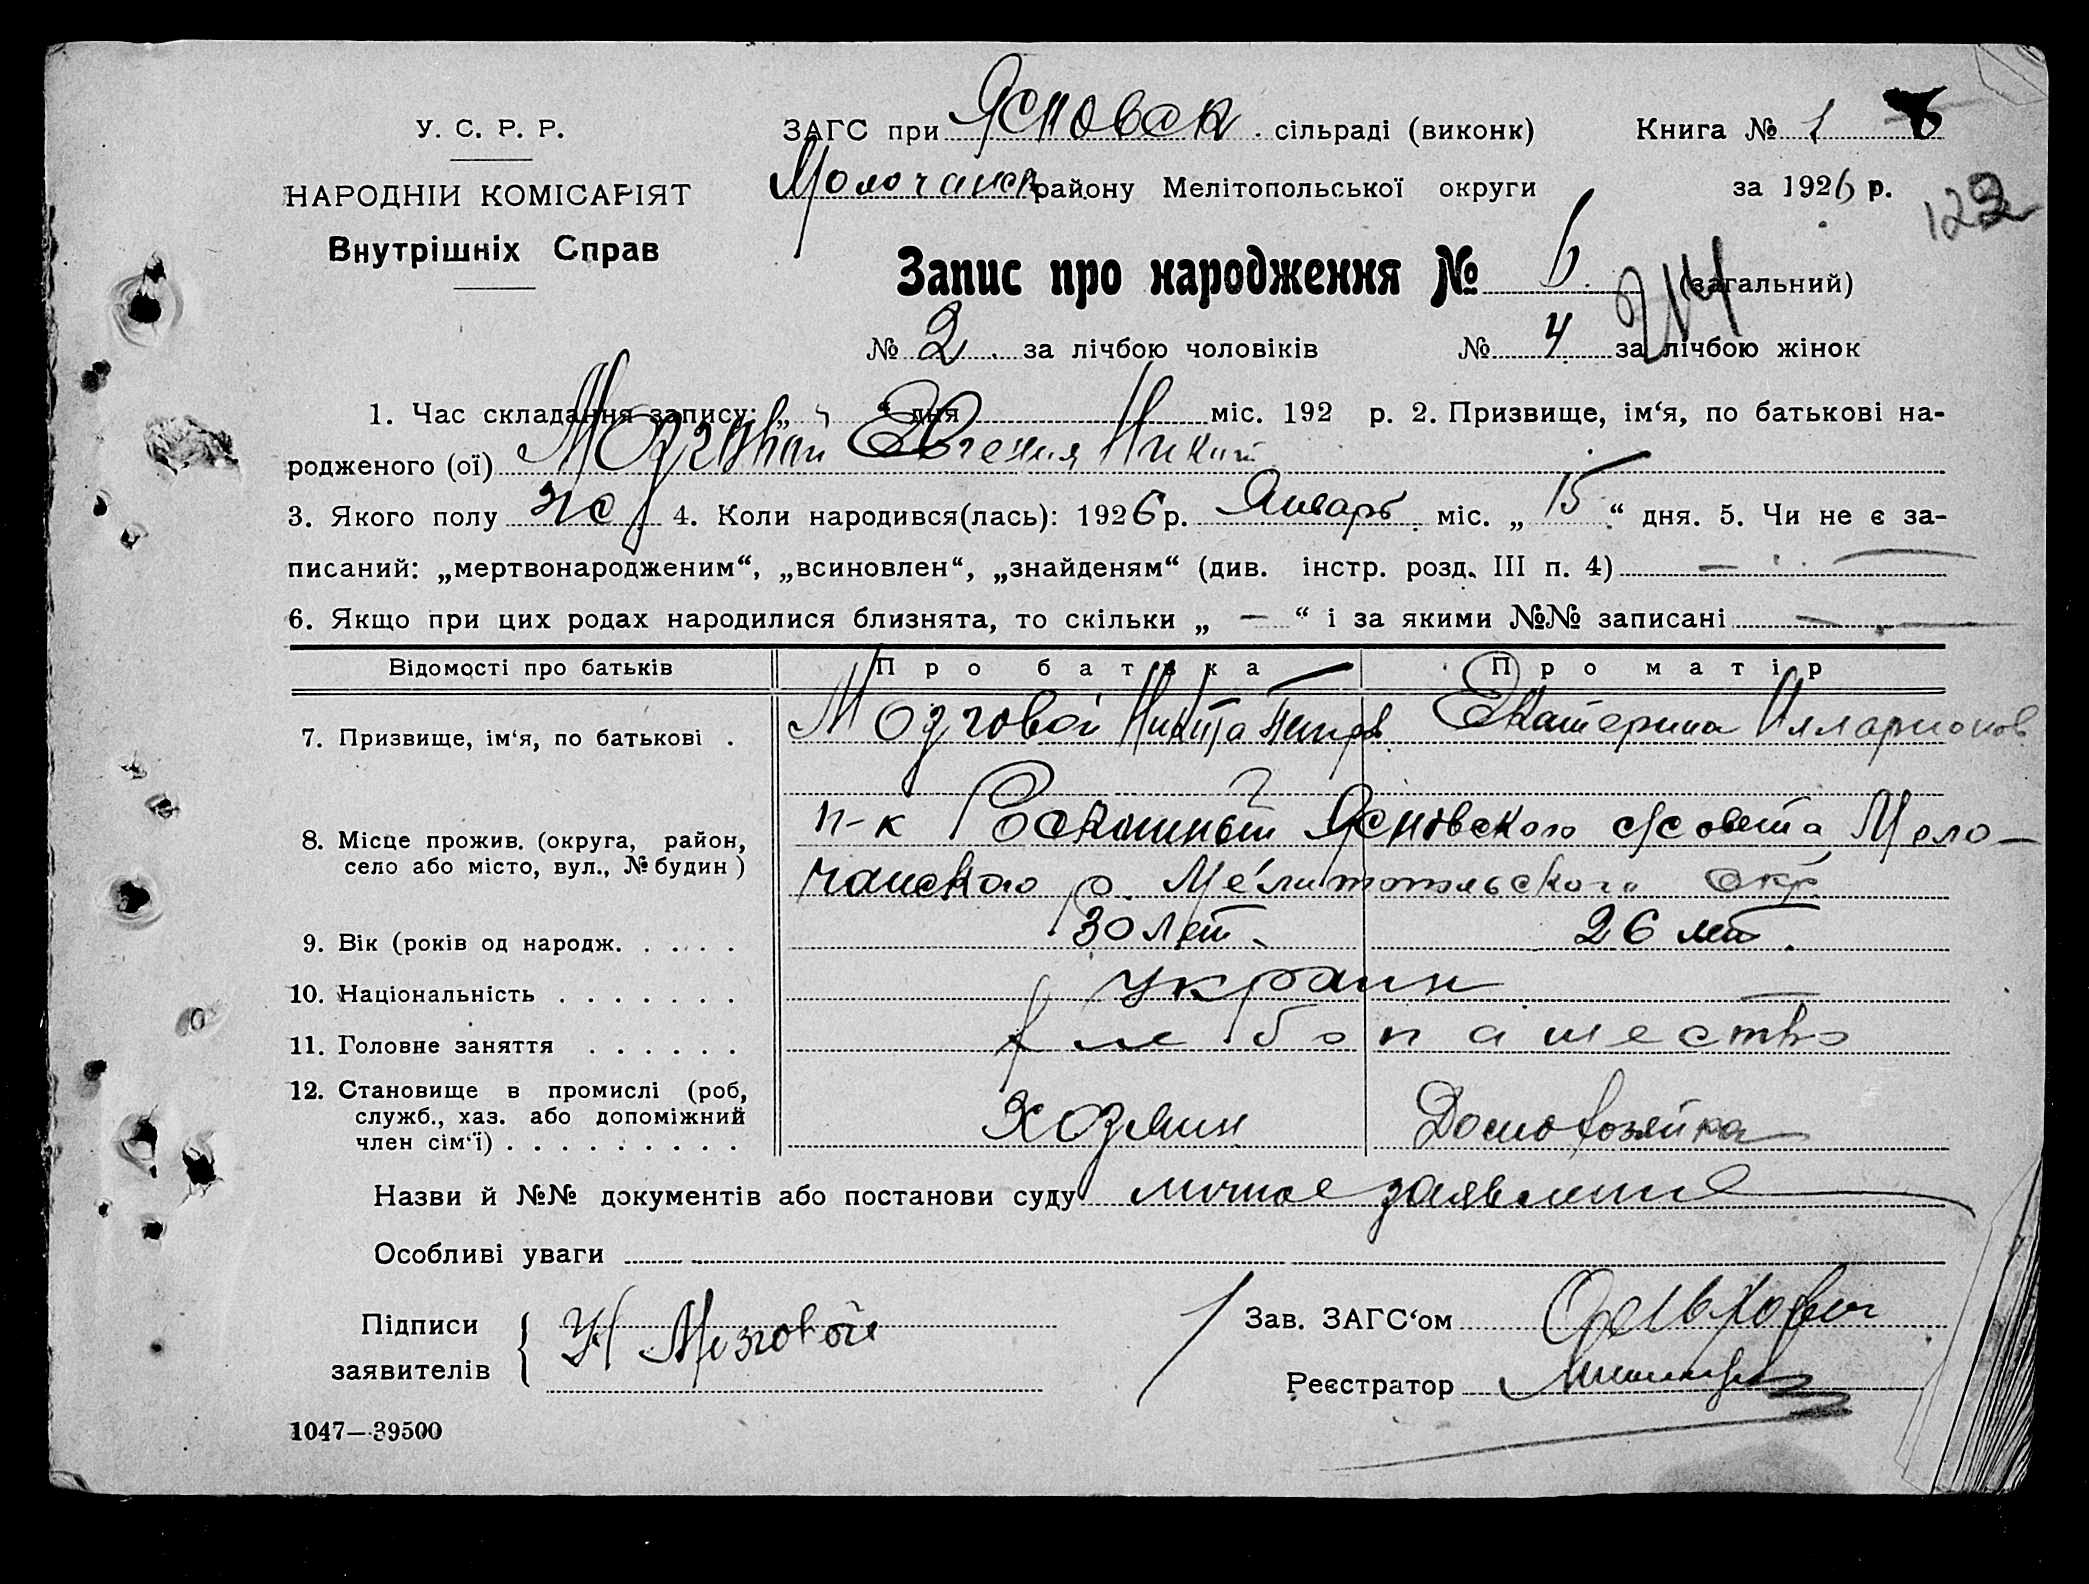 У. С. Р. Р.
НАРОДНІЙ КОМІСАРІЯТ
Внутрішніх Справ
ЗАГС при Ясновск. сільраді (виконк) Книга № 1
Молочанск району Мелітопольської округи за 1926 р.
122
Запис про народження № 6. (загальний)
214
№ 2 за лічбою чоловіків № 4 за лічбою жінок
1. Час складання запису: „ “ дня міс. 192 р. 2. Призвище, ім‘я, по батькові на-
родженого (ої) Мозговой Евгения Никит
3. Якого полу жс 4. Коли народився(лась): 1926 р. Январь міс. „ 15 “ дня. 5. Чи не є за-
писаний: „мертвонародженим“, „всиновлен“, „знайденям“ (див. інстр. розд. III п. 4) —
6. Якщо при цих родах народилися близнята, то скільки „ — “ і за якими №№ записані —
Відомості про батьків Про батька Про матір
7. Призвище, ім‘я, по батькові . Мозговой Никита Екатерина Илларионов
8. Місце прожив. (округа, район, село або місто, вул., № будин) п-к Роскошный Ясновского с/совета Моло-
чанского р. Мелитопольского окр.
9. Вік (років од народж. . . . . 30 лет. 26 лет.
10. Національність . . . . . . . украин
11. Головне заняття . . . . . . хлебопашество
12. Становище в промислі (роб,
служб., хаз. або допоміжний
член сім‘ї) . . . . . . . . . Хозяин Домохозяйка
Назви й №№ документів або постанови суду личное заявление
Особливі уваги
Підписи
заявителів Н Мозговой
Зав. ЗАГС‘ом
Реєстратор
1047—39500